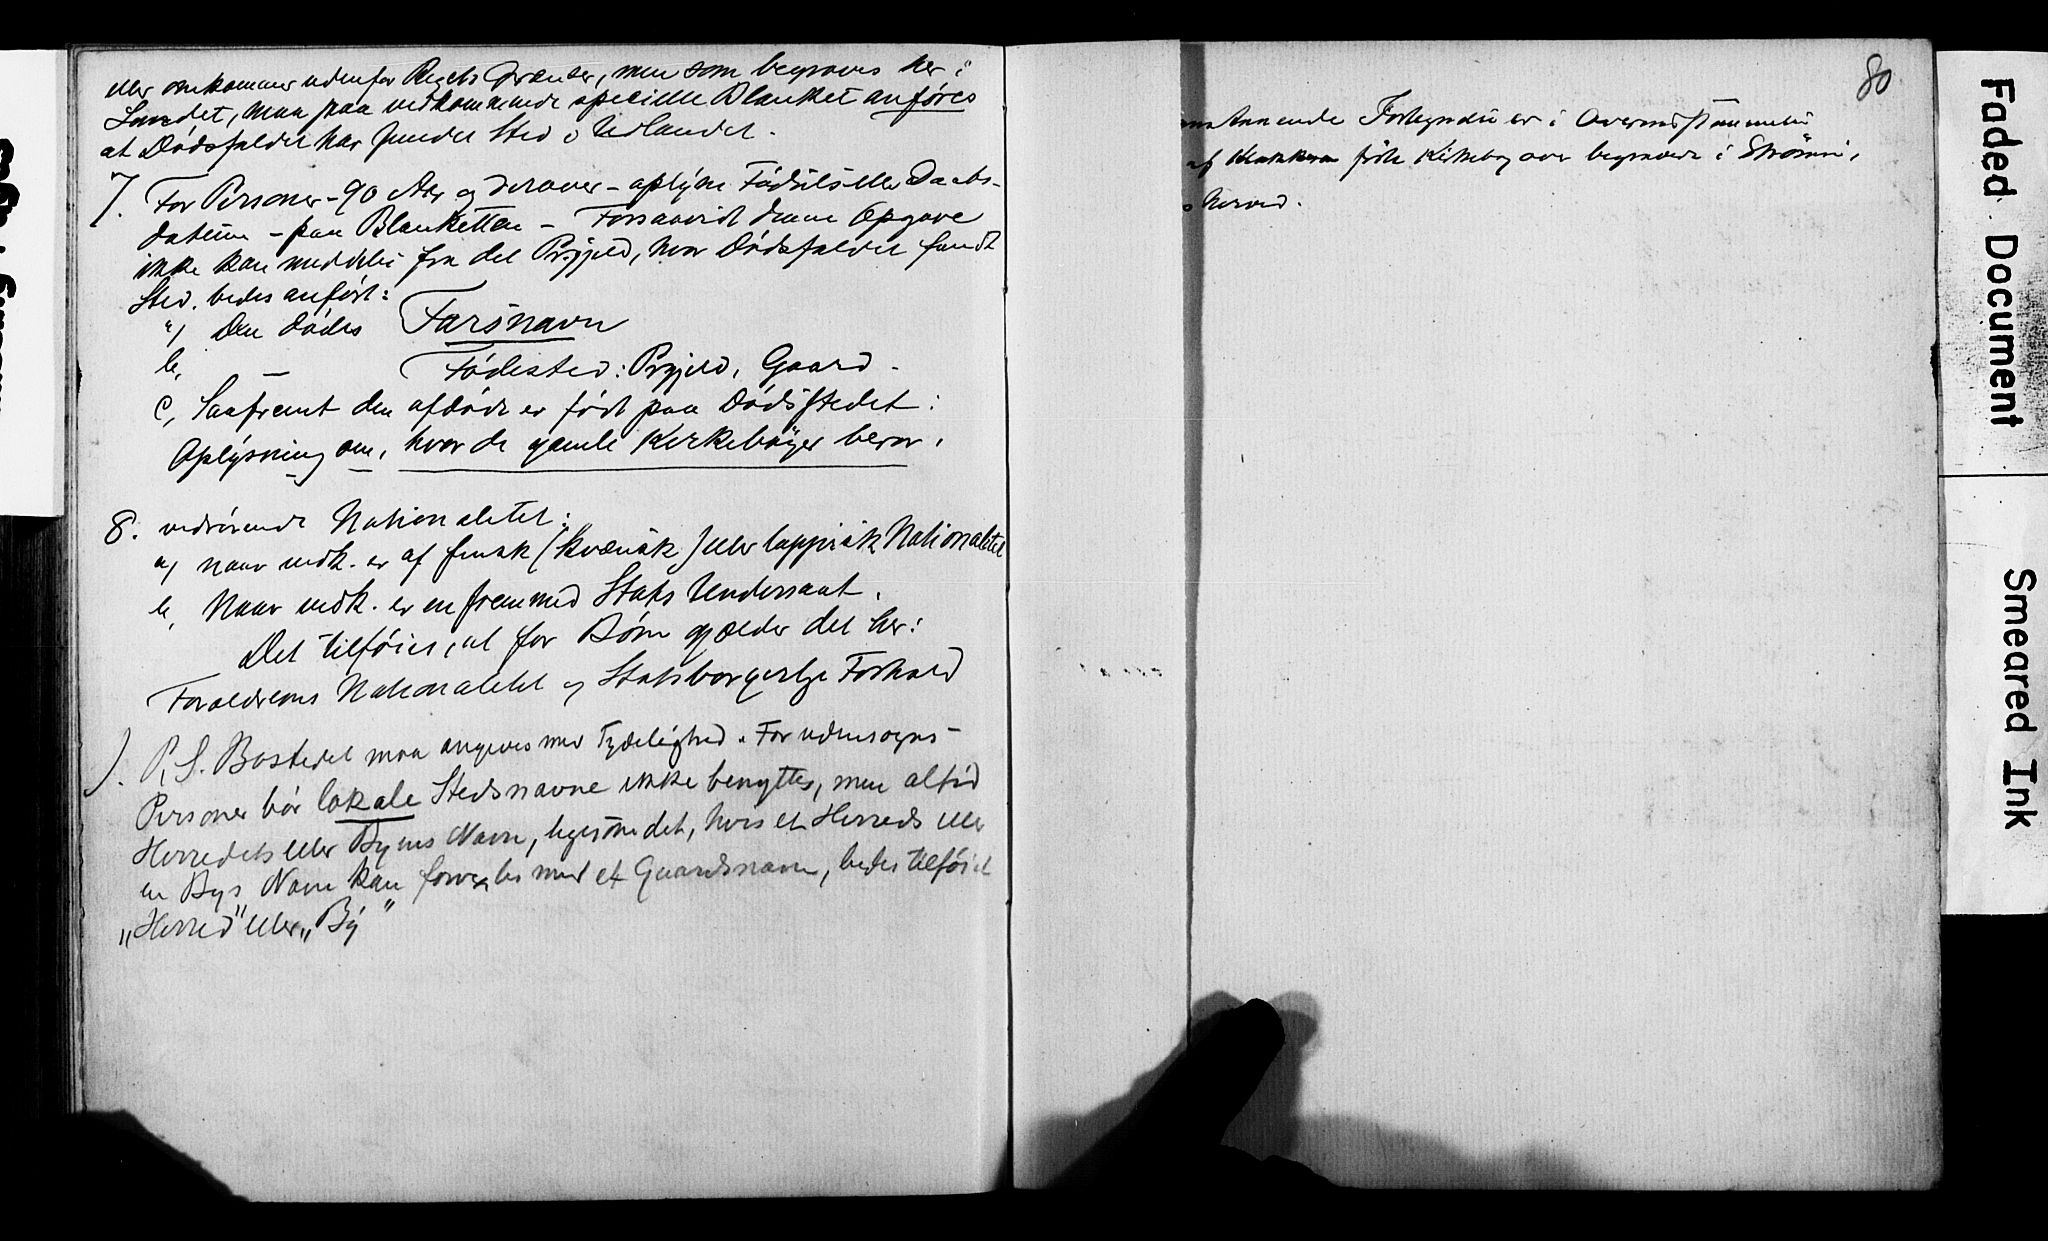 eller omkommer udenfor Rigets Grænser, men som begraves her i
Landet, maa paa vedkommende specielle Blanket anføres
at Dødsfaldet har fundet Sted i Udlandet.
7. For Personer - 90 Aar og derover - oplyse Fødsels eller Daabs-
datum - paa Blanketten - Forsaavidt denne Opgave
ikke kan meddeles fra det Prgjeld, hvor Dødsfaldet fandt
Sted. bedes anført:
a) Den dødes Farsnavn
b, — Fødested: Prgjeld, Gaard.
c, Saafremt den afdøde er født paa Dødsstedet:
Oplysning om, hvor de gamle Kirkebøger beror.
8. vedrørende Nationalitet:
a) naar vedk. er af finsk (kvænsk) eller lappisk Nationalitet
b, Naar vedk. er en fremmed Stats Undersaat.
Det tilføies, at for Børn gjælder det her:
Forældrenes Nationalitet og Statsborgerlige Forhold
). P.S. Bostedet maa angives med Tydelighed. For udensogns-
Personer bør lokale Stedsnavne ikke benyttes, men altid
Herredets eller Byens Navn, ligesom det, hvis et Herreds eller
en Bys Navn kan forvexles med et Gaardsnavn, bedes tilføiet
„Herred" eller „By"
80
Fortegnelse er i Overensstemmelse
af Klokkeren førte Kirkebog over begravede i
Herred.
Faded Document
Smeared Ink